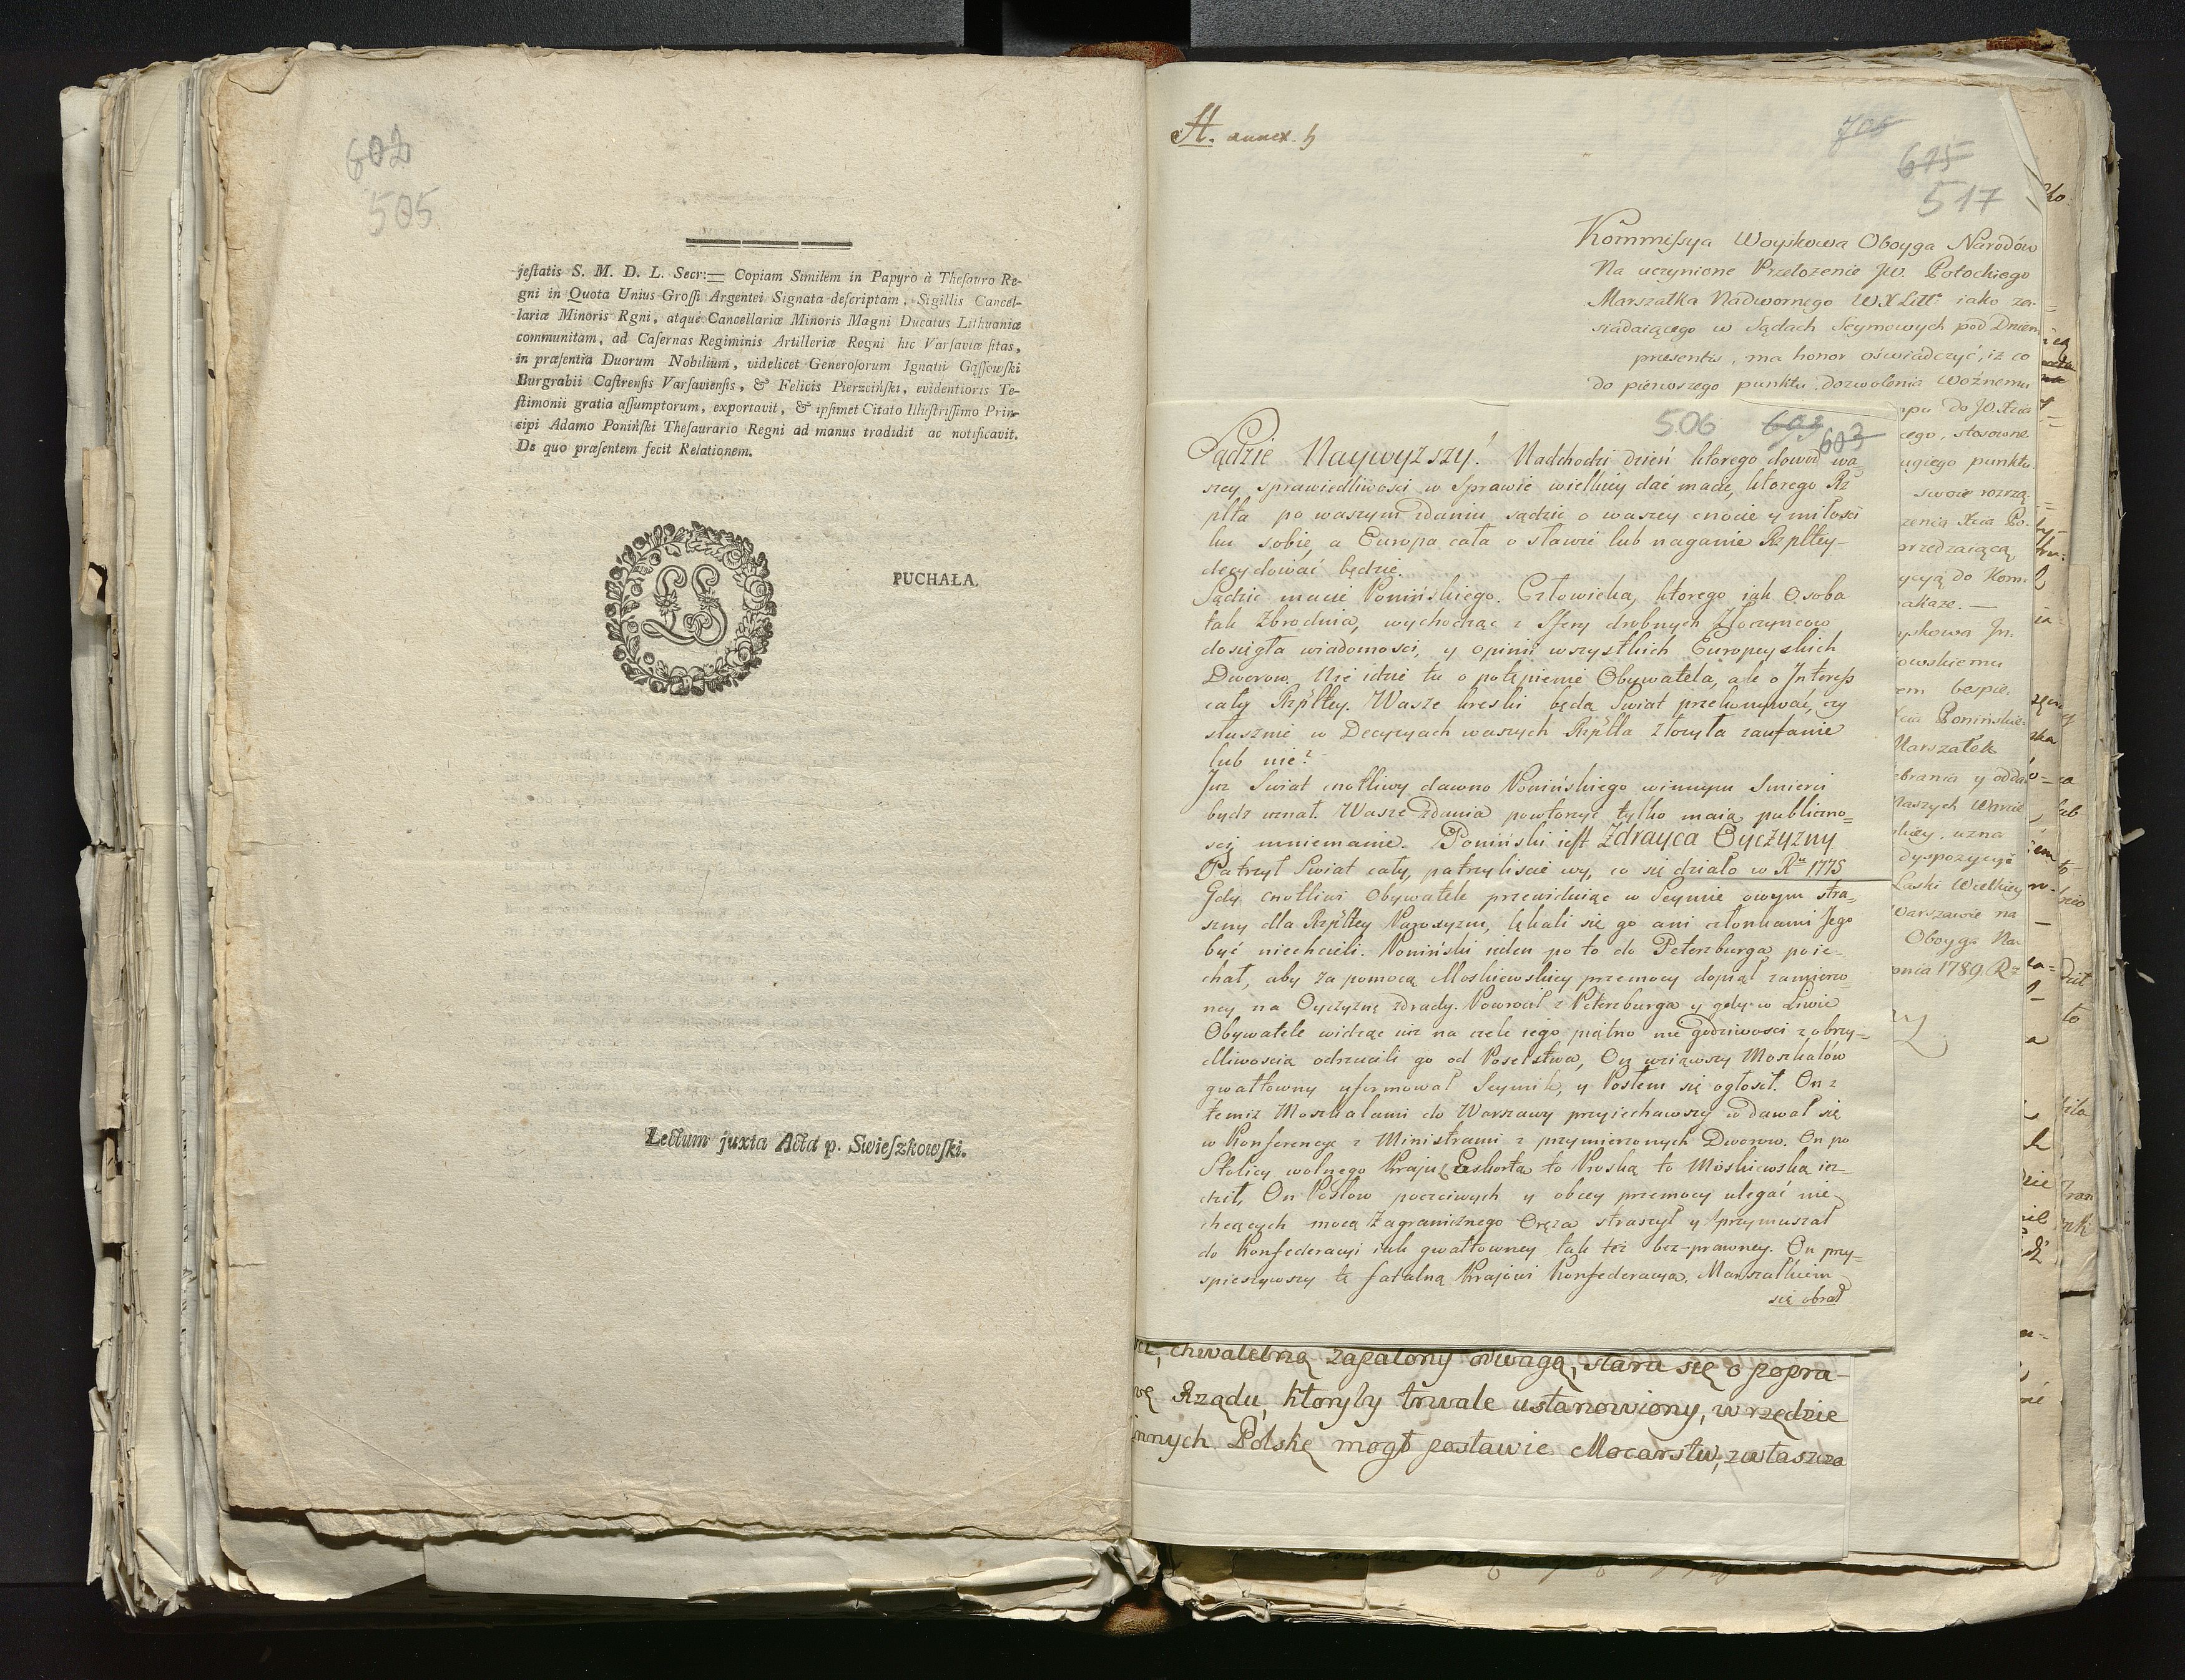 602
505
-jeſtatis S. M. D. L. Secr:= Copiam Similem in Papyro à Theſauro Re-
gni in Quota Unius Groſſi Argentei Signata deſcriptam, Sigillis Cancel-
-lariæ Minoris Rgni, atque Cancellariæ Minoris Magni Ducatus Lithuaniæ
communitam, ad Caſernas Regiminis Artilleriæ Regni hic Varſaviæ ſitas,
in præſentia Duorum Nobilium, videlicet Generoſorum Ignatii Gąſſowſki
Burgrabii Caſtrenſis Varſavienſis, & Felicis Pierzcińſki, evidentioris Te-
ſtimonii gratia aſſumptorum, exportavit, & ipſimet Citato Illuſtriſſimo Prin-
cipi Adamo Ponińſki Theſaurario Regni ad manus tradidit ac notificavit.
De quo præſentem fecit Relationem.
LS
PUCHAŁA.
Lectum juxta Acta p. Swieſzkowſki.
A. annex. h
705
675
517
Kommiſsya Woyskowa Oboyga Narodów
Na uczynione Przełozenie JW. Potockiego
Marszałka Nadwornego WXLitt: iako za-
siadaiącego w Sądach Seymowych pod Dniem
presentis, ma honor oświadczyć, iz co
do pierwszego punktu dozwolenia Woźnemu
506 603 603
Sądzie Naywyzszy! Nadchodzi dzień ktorego dowod wa=
szey sprawiedliwosci w Sprawie wielkiey dać macie, ktorego Rz
plta po waszym zdaniu sądzić o waszey cnocie y miłosci
ku sobie, a Europa cała o sławie lub naganie Rzpltey
decydować będzie.
Sądzić macie Ponińskiego. Człowieka, ktorego iak Osoba
tak Zbrodnia, wychodząc z Sfery drobnych Złoczyncow
dosięgła wiadomosci, y opinii wszystkich Europeyskich
Dworow. Nie idzie tu o potępienie Obywatela, ale o Interess
cały Rzpltey. Wasze kreski będą Swiat przekonywać, czy
słusznie w Decyzyach waszych Rzplta złozyła zaufanie
lub nie?
Juz Swiat cnotliwy dawno Ponińskiego winnym Smierci
bydz uznał. Wasze Zdania powtorzyć tylko maią publiczno=
sci mniemanie. Poniński iest Zdrayca Oyczyzny
Patrzył Swiat cały, patrzyliscie wy, co się działo w Rku 1775
Gdy cnotliwi Obywatele przewiduiąc w Seymie owym stra=
szny dla Rzpltey Paroxyzm, lękali się go ani członkami Jego
być niechcieli. Poniński ieden po to do Petersburga poie-
chał, aby za pomocą Moskiewskiey przemocy dopiął zamierzo
ney na Oyczyznę zdrady. Powrocił z Petersburga y gdy w Liwie
Obywatele widząc iuz na czele iego piątno nie godziwosci z obrzy-
dliwoscią odrzucili go od Poselstwa, On wziąwszy Moskalów
gwałtowny uformował Seymik, y Posłem się ogłosił. On z
temiz Moskalami do Warszawy przyiechawszy wdawał się
w Konferencye z Ministrami z przymierzonych Dworow. On po
Stolicy wolnego Kraju z Eskortą to Pruską to Moskiewską iez-
dził, On Posłow poczciwych y obcey przemocy ulegać nie
chcących mocą Zagranicznego Oręza straszył y przymuszał
do Konfederacyi iak gwałtowney tak tez bez-prawney. On przy=
spieszywszy tę fatalną Krajowi Konfederacyą, Marszałkiem
się obrał
chwalebną zapalony uwagą, stara się o popra-
wę Rządu, ktoryby trwale ustanowiony, w rzędzie
innych Polskę mogł postawić Mocarstw, zwłaszcza
do JO. Xcia
cego, stosowne
ugiego punktu
swoie rozrzą-
zenia Xcia Po-
przedzaiącą
ycyą do Kom.
akaze. —
yskowa Jn.
owskiemu
em bespie.
Xcia Ponińskie-
Marszałek
ebrania y odda
Naszych Warcie
uzna
dyspozycyi
Laski Wielkiey
Warszawie na
Oboyga Na
pnia 1789. R